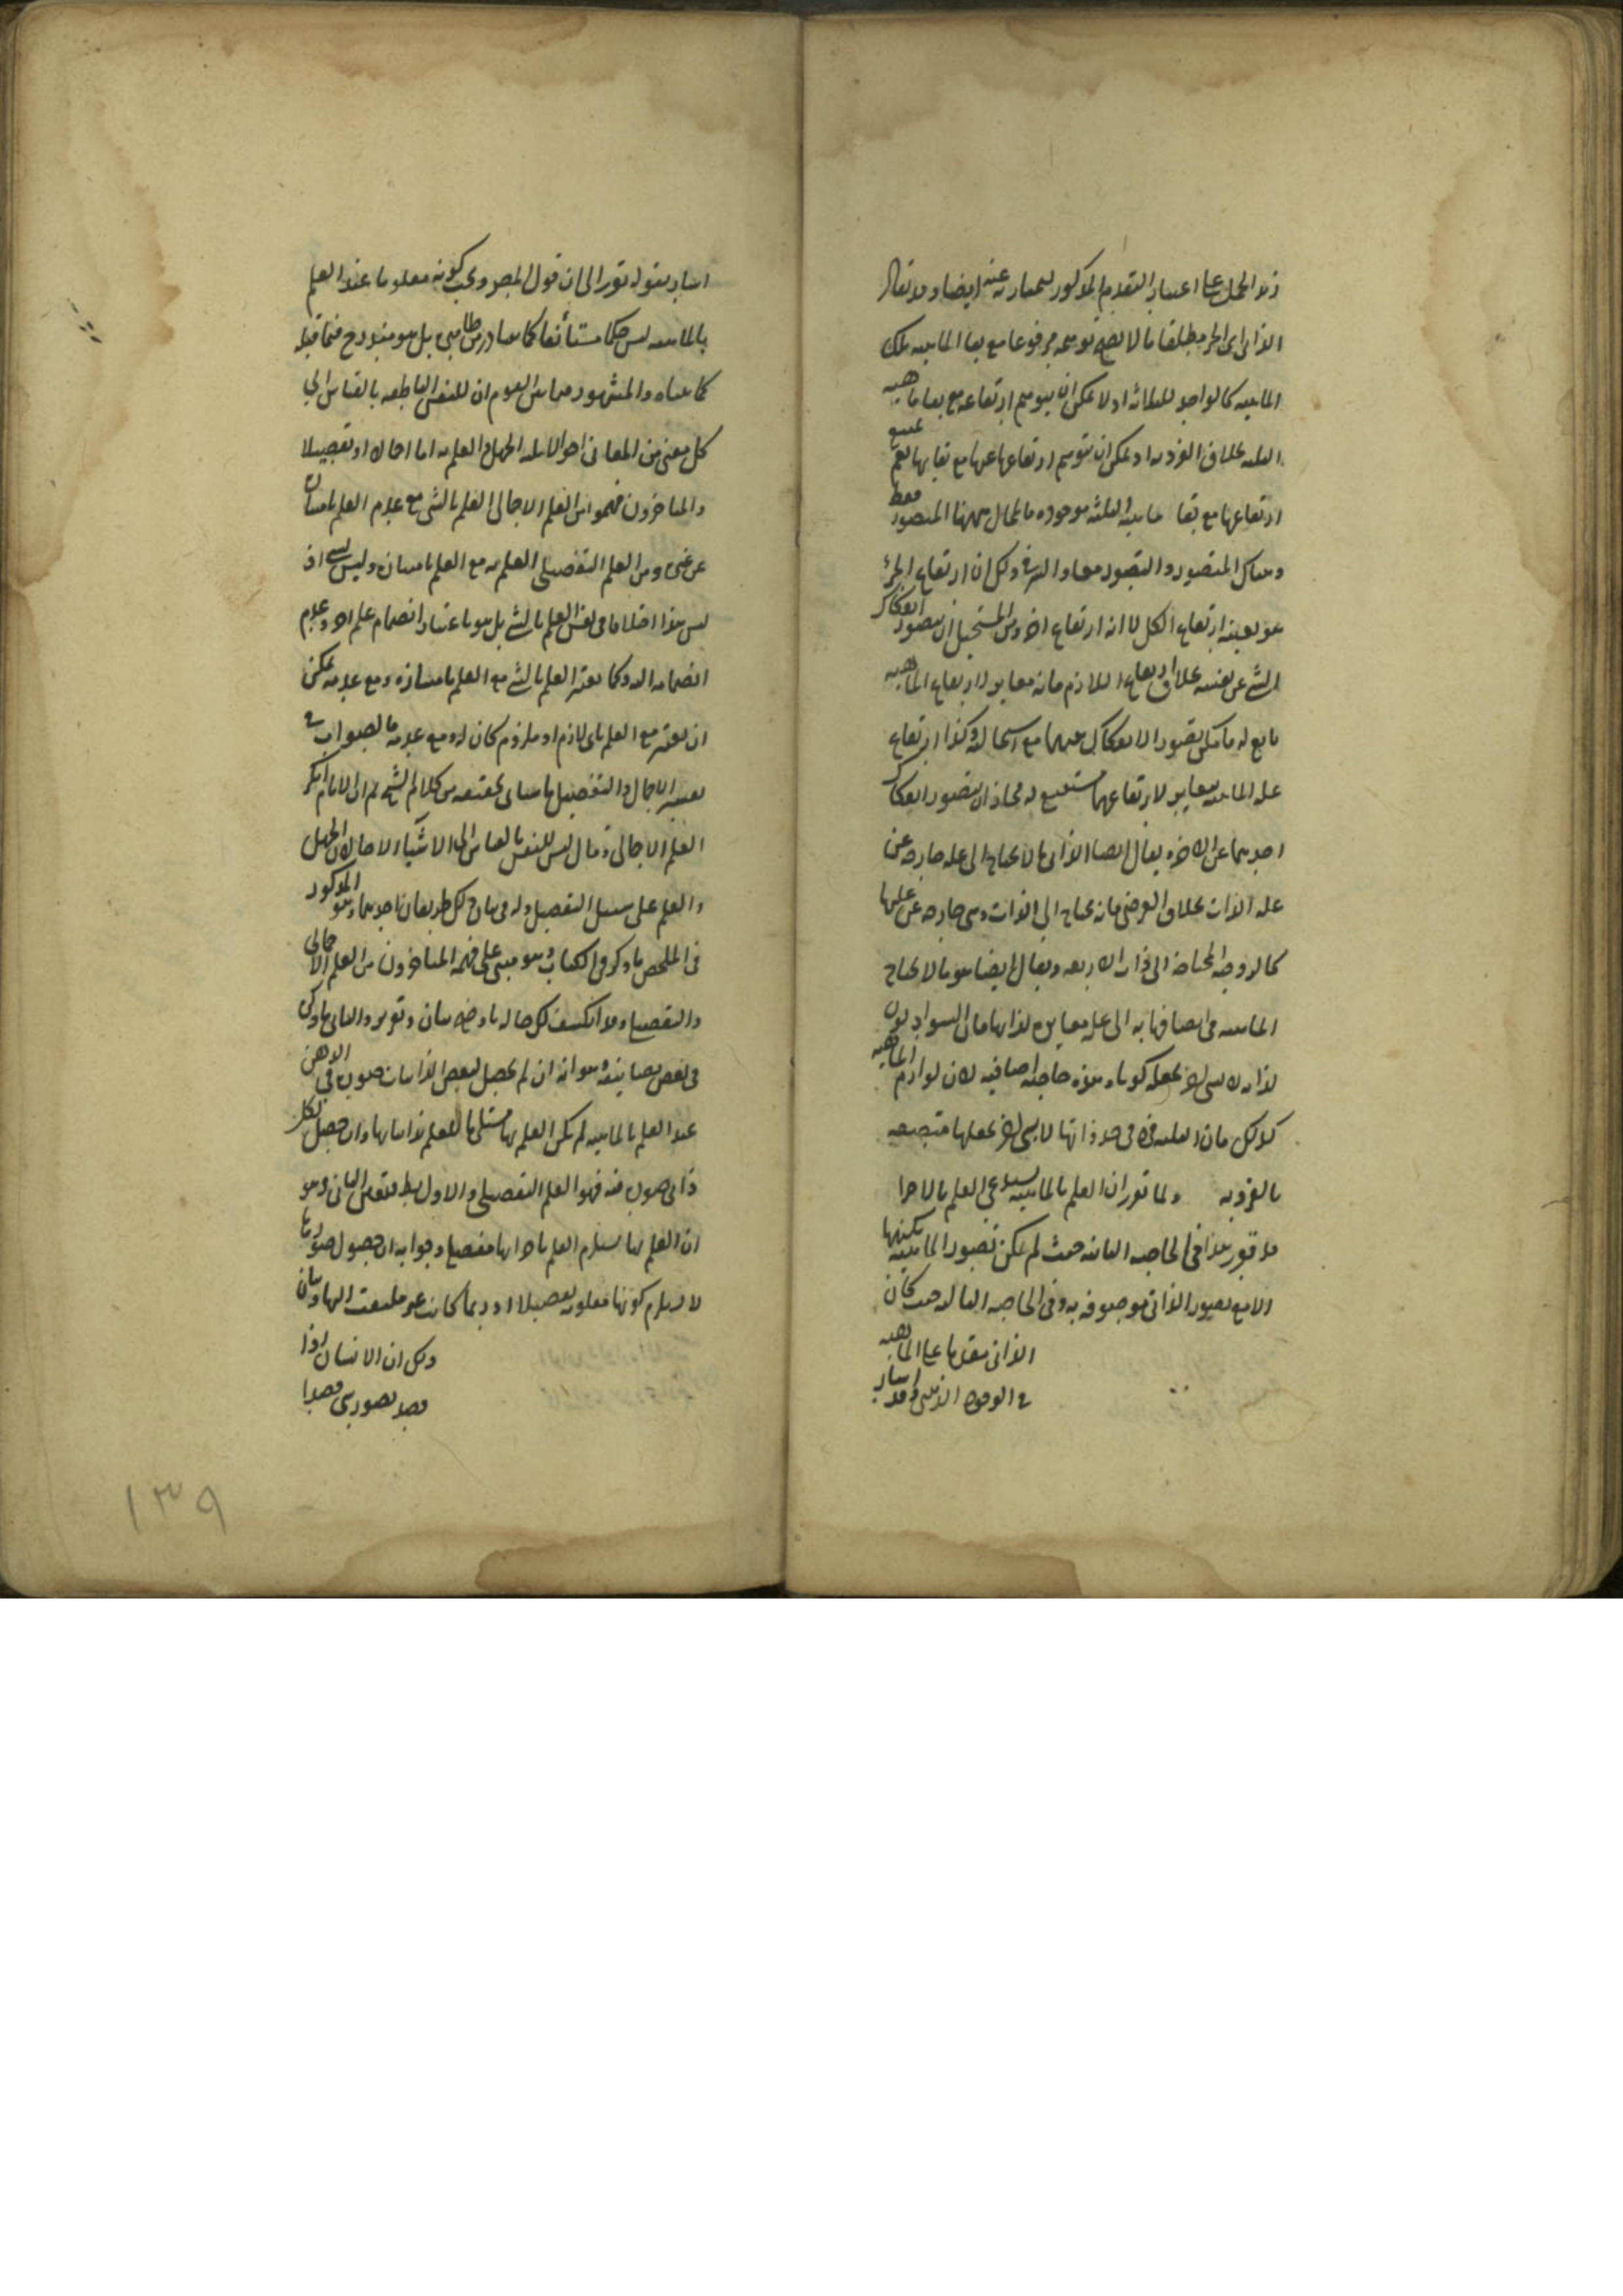 الذاتى اى الجزء مطلقا ما لا يصح توهمه مرفوعا مع بقاء الماهيه كلك
الماهيه كالواحد للثلاثه اذ لا يمكن ان يتوهم ارتفاعه مع بقاء ماهيه
الثلثه بخلاف الفرديه اذ يمكن ان يتوهم ارتفاعها عنها مع بقايها نعم يمتنع
ارتفاعها مع بقا ماهيه الثلثه موجوده فالمحال ههنا المتصور فقط
وهناك المتصور والتصور معا والسر فى ذلك ان ارتفاع الجزء
هو بعينه ارتفاع الكل لا انه ارتفاع اخر ومن المستحيل ان يتصور انفكاك
الشى عن نفسه بخلاف ارتفاع اللازم فانه مغاير لارتفاع الماهيه
تابع له فامكن تصور الانفكاك بينهما مع استحالته وكذا ارتفاع
عله الماهيه مغاير لارتفاعها مستتبع له فجاز ان يتصور انفكاك
احدهما عن الاخر ويقال ايضا الذاتى ما لا يحتاج الى عله خارجه عن
عله الذات بخلاف العرضى فانه يحتاج الى الذات وهى خارجه عن علتها
كالزوجيه المحتاجه الى ذات الاربعه ويقال ايضا هو ما لا يحتاج
الماهيه فى اتصافها به الى عله مغايره لذاتها فان السواد لون
لذاته لا لشى اخر يجعله لونا وهذه خاصه اضافيه لان لوازم الماهيه
كذلك فان الثلثه فرد فى حد ذاتها لا لشى اخر يجعلها متصفه
بالفرديه ولما تقرر ان العلم بالماهيه يستدعى العلم بالاجزا
الا مع تصور الذاتى موصوفه به وفى الخاصه الثالثه حيث كان
الذاتى متقدما على الماهيه
فى الوجود الذهنى وقد اشار
اشار بقوله تقرر الى ان قول المص ويجب كونه معلوما عند العلم
بالماهيه ليس حكما مستأنفا كما يتبادر من ظاهره بل هو مندرج فيما قبله
كما بيناه والمشهور فيما بين القوم ان للنفس الناطقه بالقياس الى
كل معنى من المعانى احوالا ثلثه الجهل والعلم به اما اجمالا او تفصيلا
والمتاخرون فهموا من العلم الاجمالى العلم بالشى مع عدم العلم بامتيازه
عن غيره ومن العلم التفصيلى العلم به مع العلم بامتيازه وليس بشى اذ
ليس هذا اختلافا فى نفس العلم بالشى بل هو باعتبار انضمام علم اخر وعدم
انضمامه اليه وكما يعتبر العلم بالشى مع العلم بامتيازه ومع عدمه يمكن
ان يعتبر مع العلم باى لازم او ملزوم كان له ومع عدمه فالصواب فى
تفسير الاجمال والتفصيل ما سياتى تحقيقه من كلام الشيخ ثم ان الامام انكر
العلم الاجمالى وقال ليس للنفس بالقياس الى الاشياء الا حالتان الجهل
والعلم على سبيل التفصيل وله فى بيان ذلك طريقان احدهما وهو المذكور
فى الملخص ما ذكره فى الكتاب وهو مبنى على فهمه المتاخرون من العلم الاجمالى
والتفصيلى وقد انكشف لك حاله باوضح بيان وتقرير والثانى ما ذكره
فى بعض تصانيفه وهو انه ان لم يحصل لبعض الذاتيات صوره فى الذهن
عند العلم بالماهيه لم يكن العلم بها مستلزما للعلم بذاتياتها وان حصل لكل
ذاتى صوره فيه فهو العلم التفصيلى والاول باطل فتعين الثانى وهو
ان العلم بها يستلزم العلم باجزايها مفصلا وجوابه ان حصول صورتها
لا يستلزم كونها معلومه تفصيلا اذ ربما كانت غير ملتفت اليها وبيان
ذلك ان الانسان اذا
قصد تصور شى قصدا
١٣٩